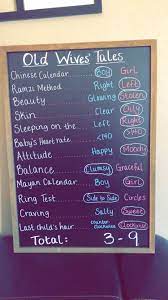 Old Wives' Tales
Chinese Calendar Boy Girl
Ramzi Method Right Left
Beauty Glowing Stolen
Skin Clear Oily
Sleeping on the Left Right
Baby's Heart rate <140 >140
Attitude Happy Moody
Balance Clumsy Graceful
Mayan Calendar Boy Girl
Ring Test Side to Side Circles
Craving Salty Sweet
Last child's hair
Total: 3 - 9